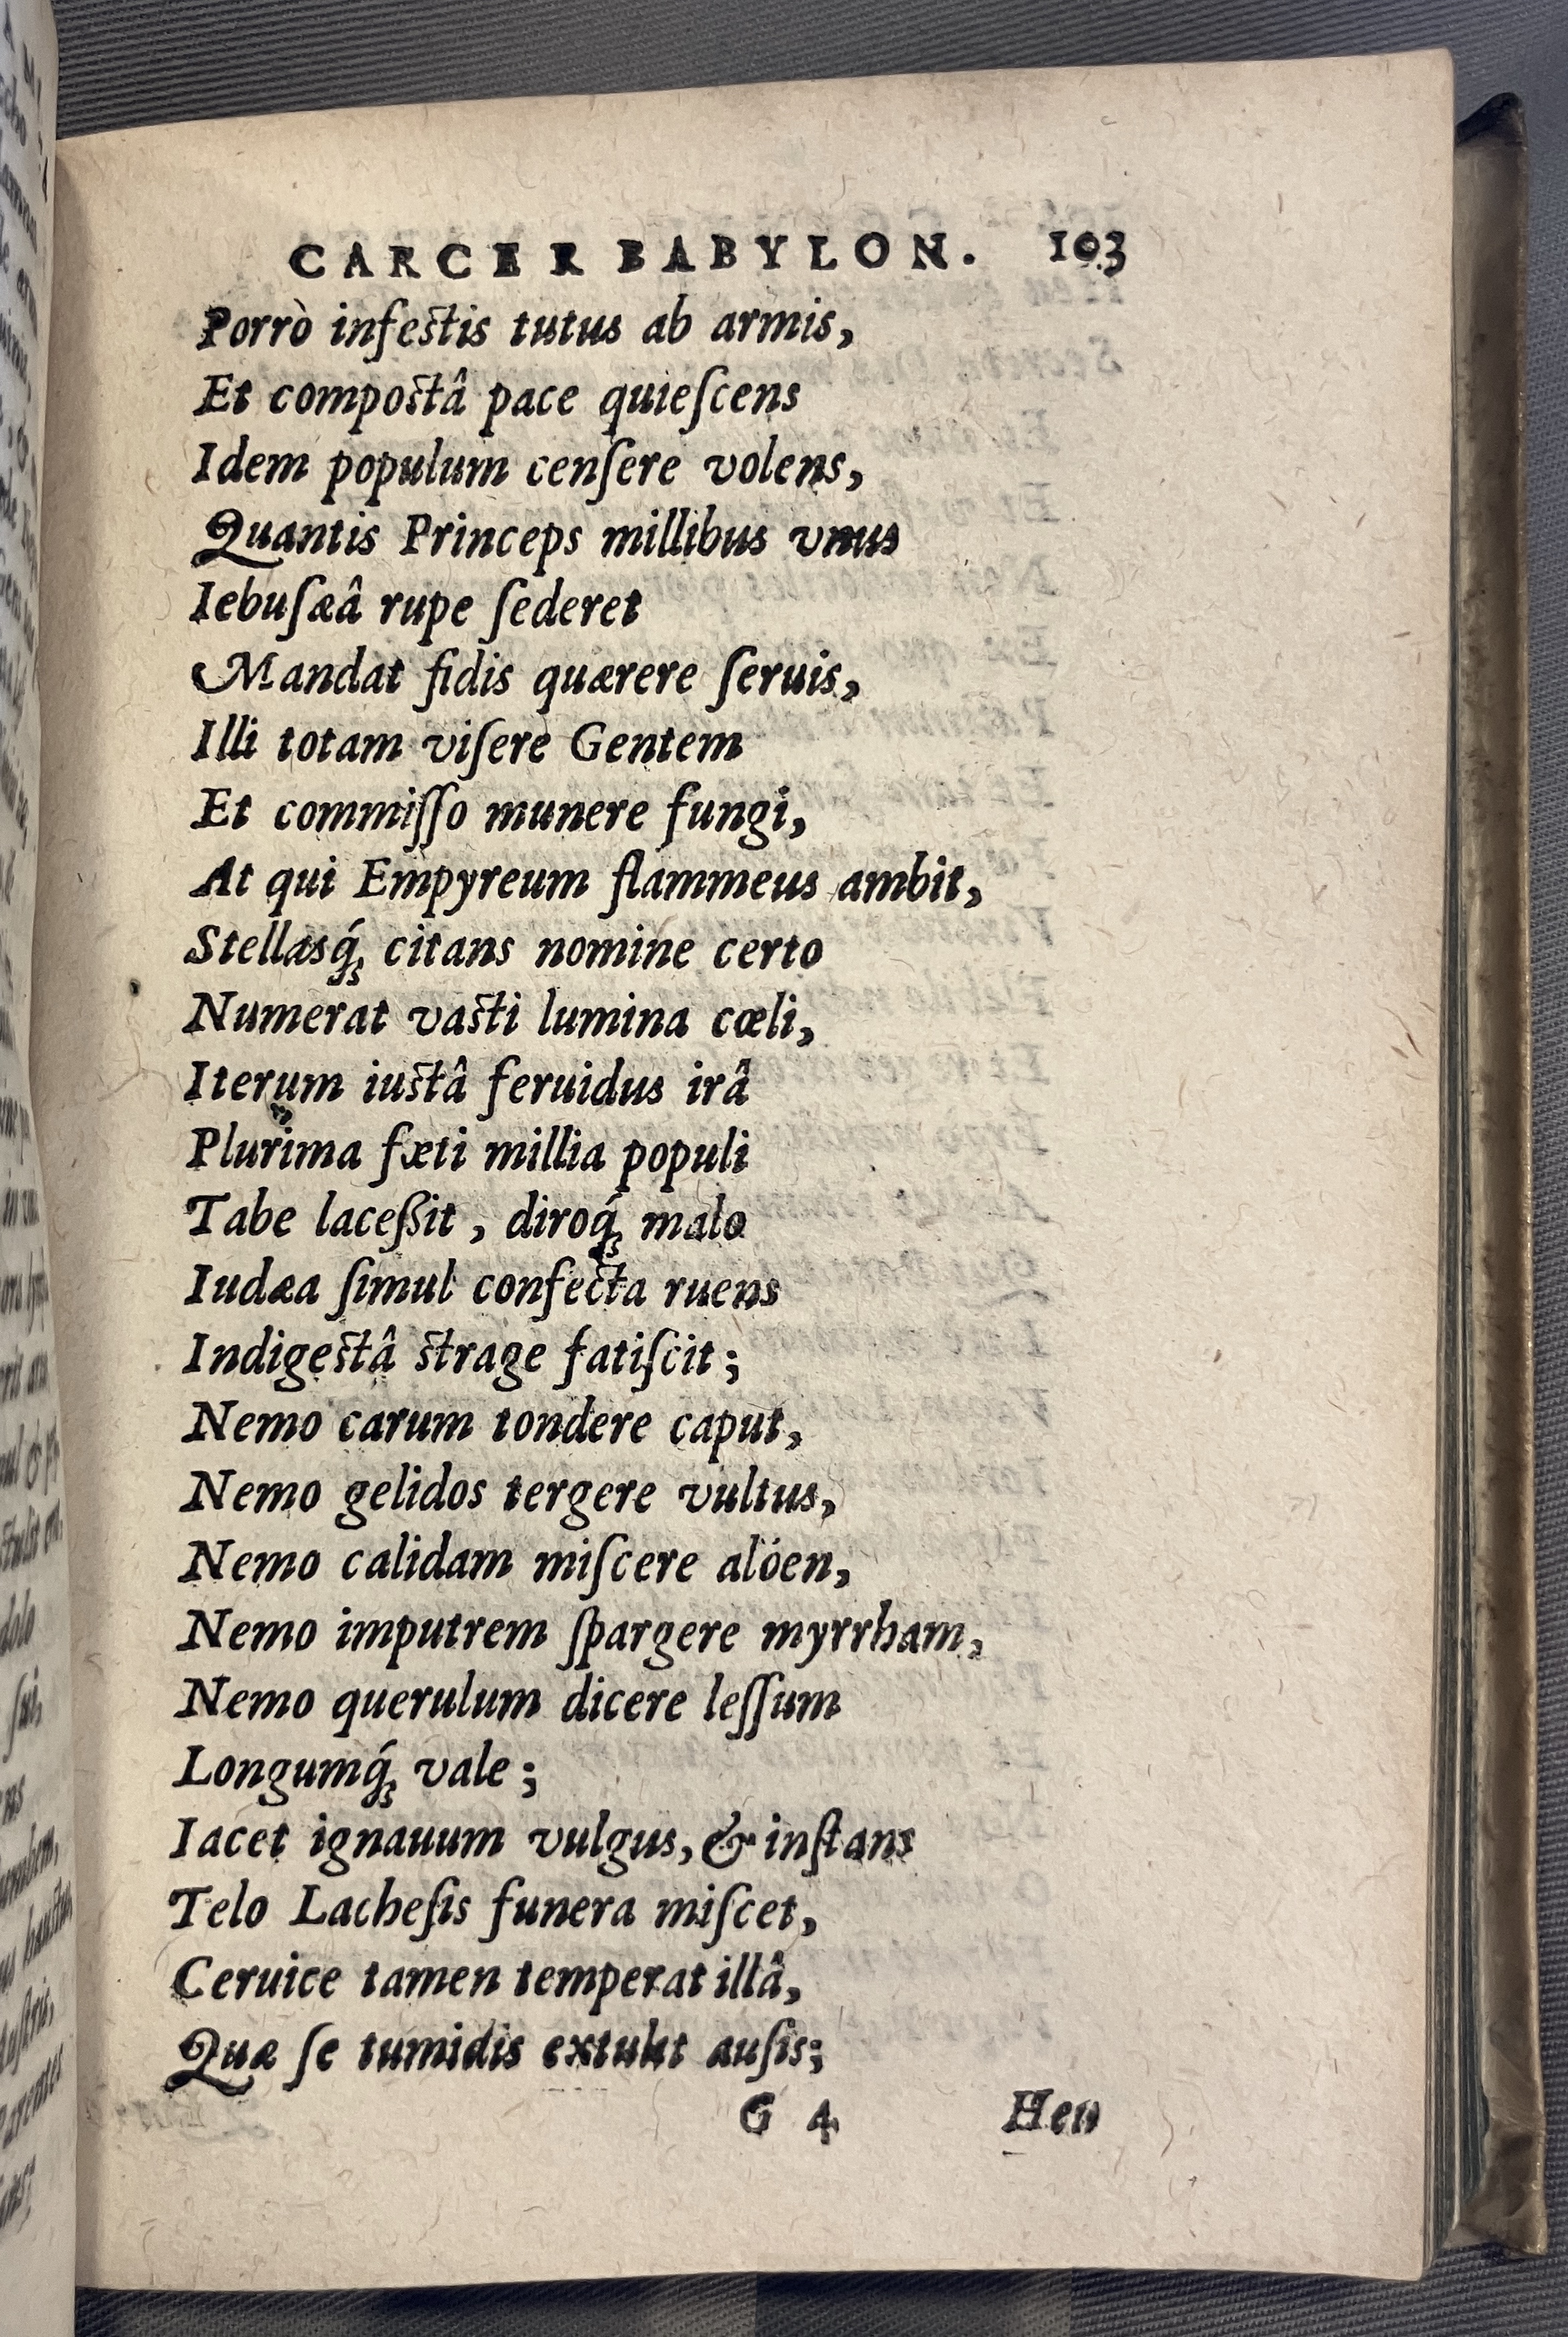 CARCER BABYLON. 103
Porrò infestis tutus ab armis,
Et compostâ pace quieſcens
Idem populum cenſere volens,
Quantis Princeps millibus vnus
Iebuſæâ rupe ſederet
Mandat fidis quærere ſeruis,
Illi totam viſere Gentem
Et commiſſo munere fungi,
At qui Empyreum flammeus ambit,
Stellasq́; citans nomine certo
Numerat vasti lumina cœli,
Iterum iustâ feruidus irâ
Plurima fæti millia populi
Tabe laceßit, diroq́; malo
Iudæa ſimul confecta ruens
Indigestâ strage fatiſcit;
Nemo carum tondere caput,
Nemo gelidos tergere vultus,
Nemo calidam miſcere alóen,
Nemo imputrem ſpargere myrrham,
Nemo querulum dicere leſſum
Longumq́; vale;
Iacet ignauum vulgus, & inſtans
Telo Lacheſis funera miſcet,
Ceruice tamen temperat illâ,
Quæ ſe tumidis extulit auſis;
G 4 Heu